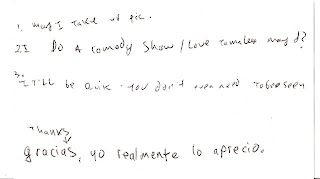 1. may I take ut pic.
2. I Do A comody Show / Love tamales may I?
3. It'll be quik - you don't even need to be seen
Thanks
gracias, yo realmente lo aprecio.